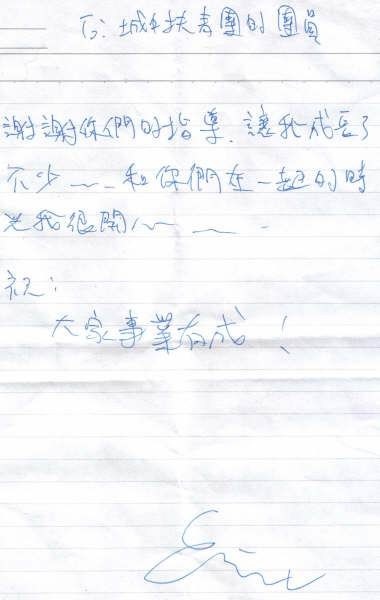 To: 城中扶青團的團員
謝謝你們的指導，讓我成長了
不少～～和你們在一起的時
光我很開心～
祝:
大家事業有成！